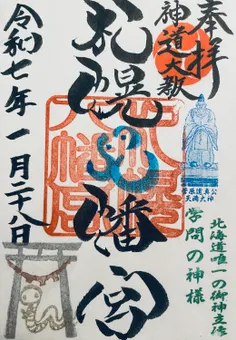 奉拝
神道大教
札幌八幡宮
八幡宮
菅原道真公
天満大神
北海道唯一の御神立像
学問の神様
令和七年一月二十八日